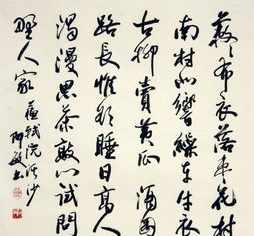 簌々巾衣落枣花村
南村北響繰車牛衣
古柳賣黄瓜酒困
路長惟欲睡日高人
渴漫思茶敲门試問
野人家
蘇軾浣溪沙